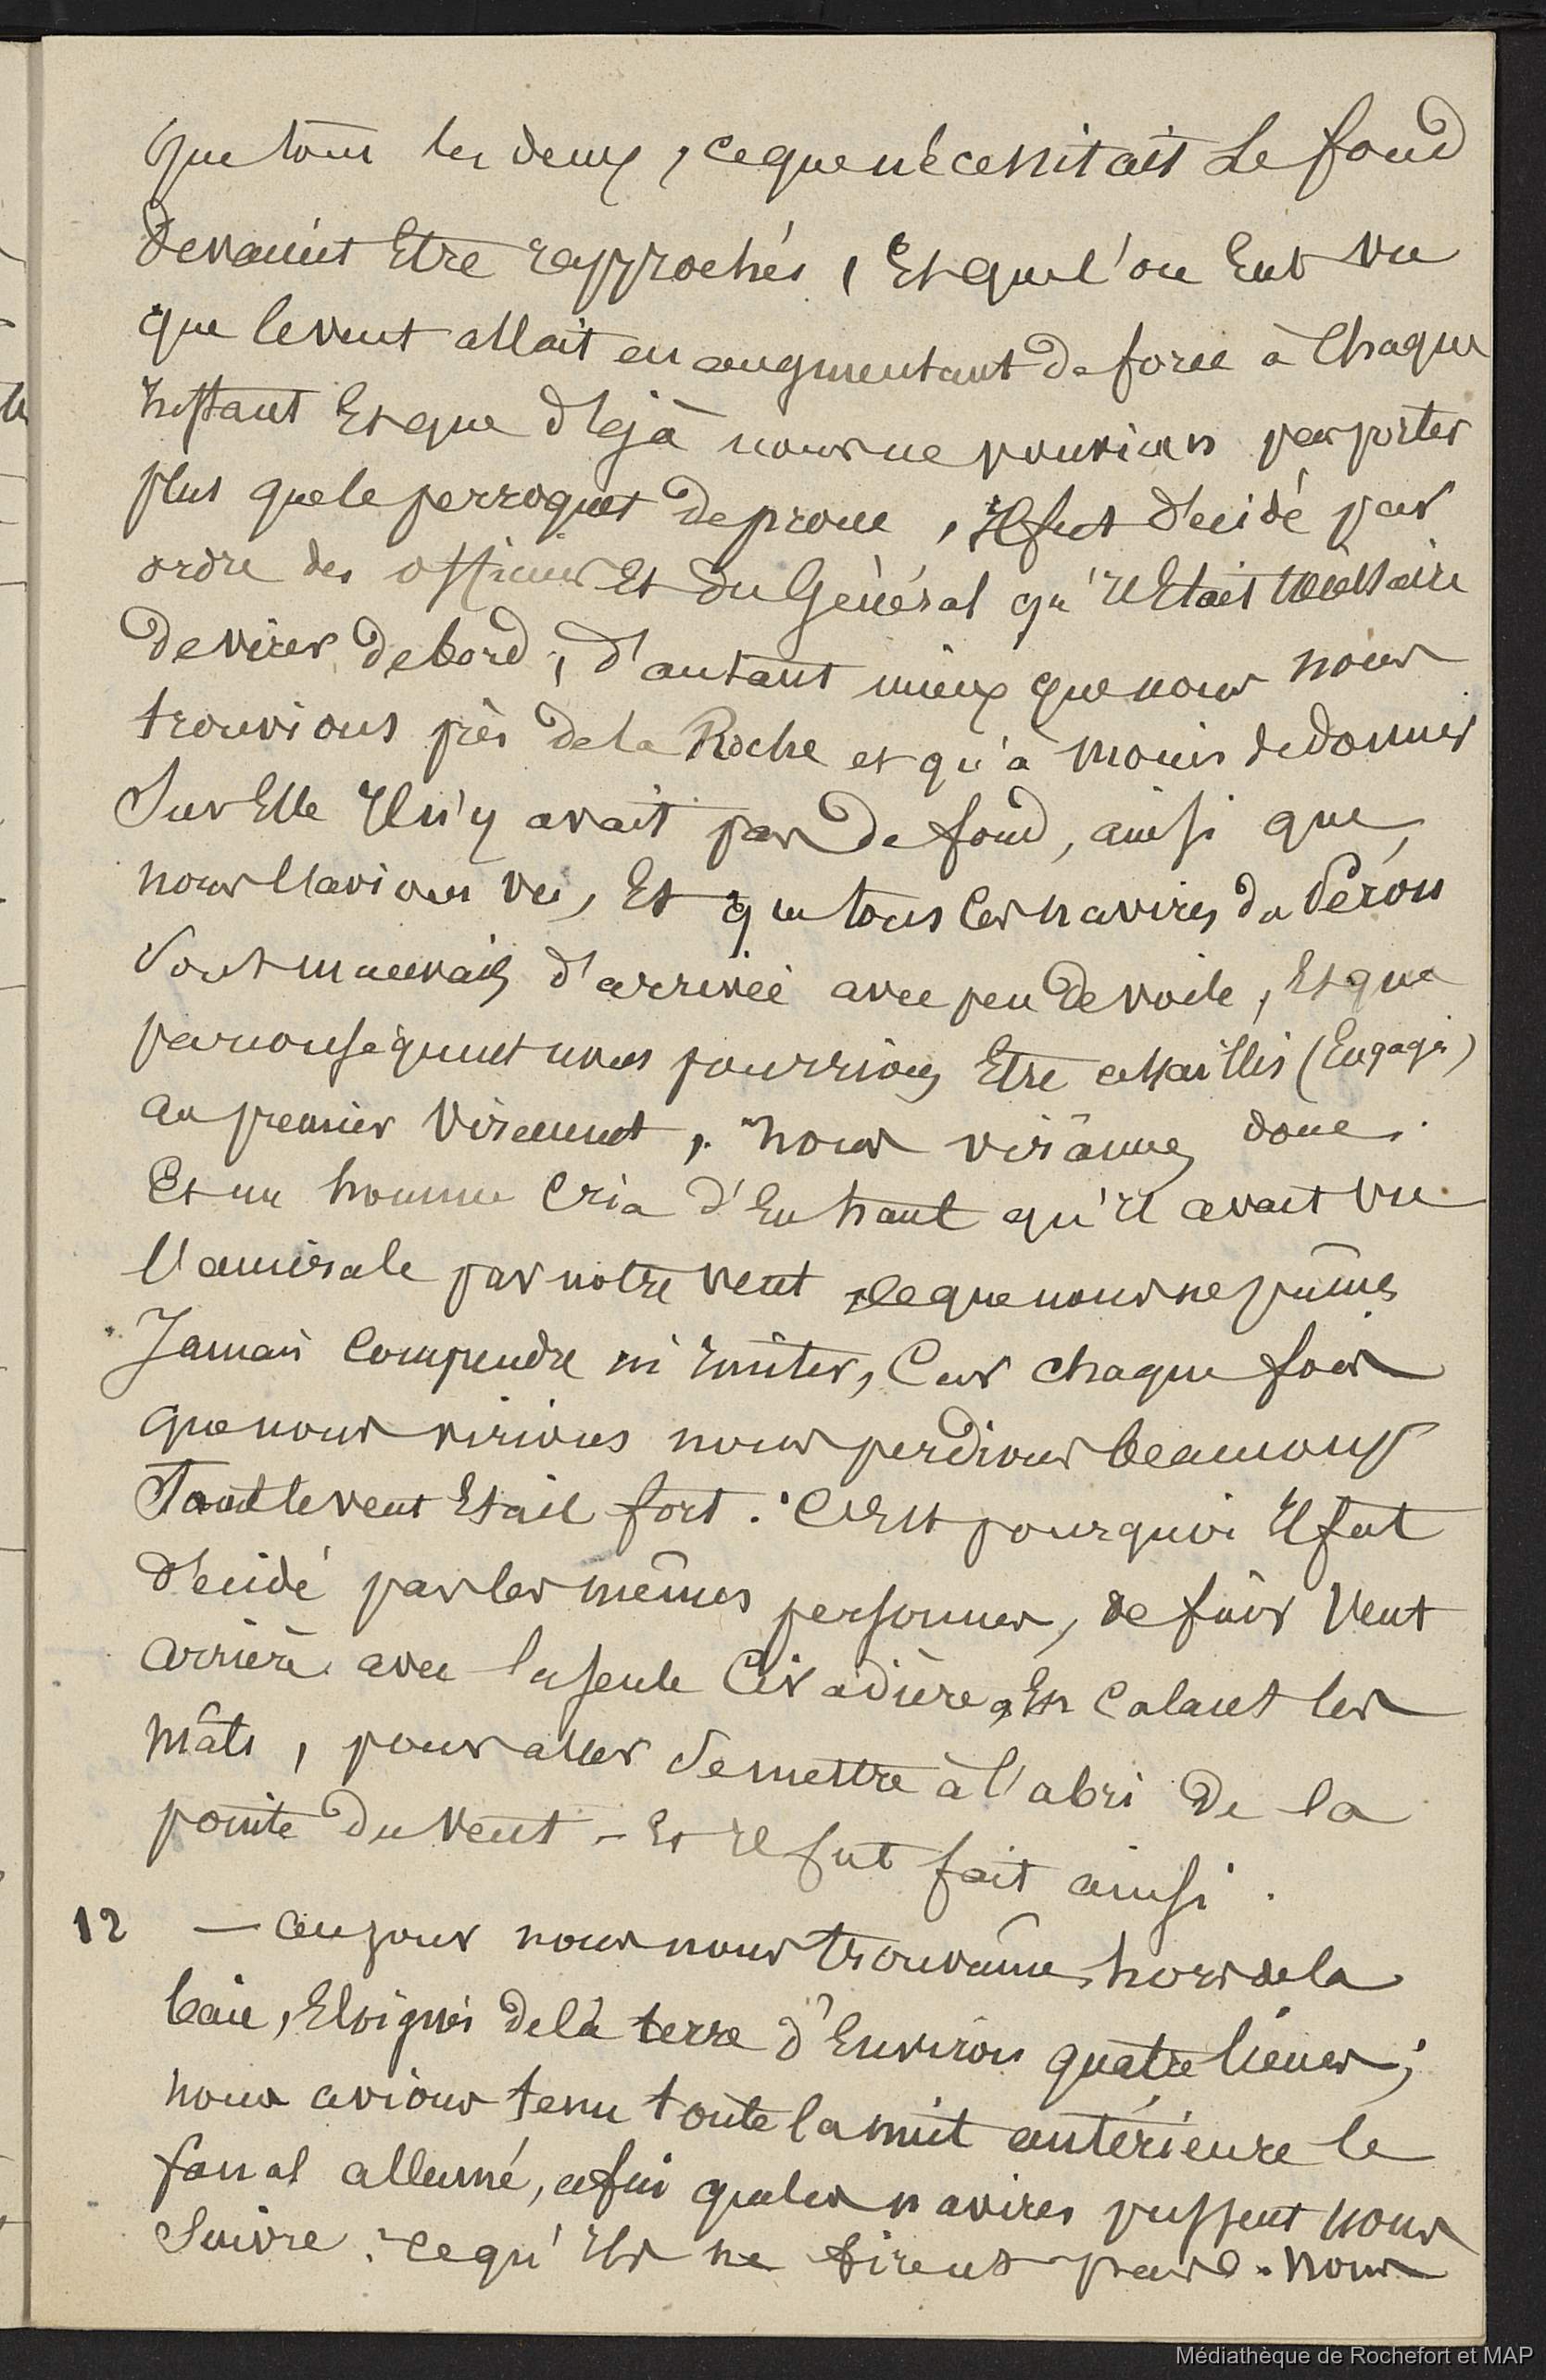 que tous les deux, ce que nécessitait Le fond
devaient Etre rapprochés, Et que l'on Eut vu
que le vent allait en augmentant de force à Chaque
Instant Et que déjà nous ne pouvions pas porter
plus que le perroquet de proue, Il fut décidé par
ordre des officiers Et du Général qu'il Etait nécessaire
de virer de bord, d'autant mieux que nous nous
trouvions près de la Roche et qu'à moins de donner
Sur Elle Il n'y avait pas de fond, ainsi que
nous l'avions vu, Et que tous les navires du Pérou
Sont mauvais d'arrivée avec peu de voile, Et que
par conséquent nous pourrions Etre assaillis (Engagés)
au premier Virement, nous virâmes donc.
Et un homme Cria d'En haut qu'il avait vu
l'amirale par notre vent ce que nous ne pûmes
Jamais Comprendre ni Imiter, Car chaque fois
que nous virions nous perdions beaucoup
Tant le vent Etait fort. C'Est pourquoi Il fut
décidé par les mêmes personnes, de fuir Vent
arrière avec la seule Civadière, En Calant les
mâts, pour aller Se mettre à l'abri De la
pointe du vent - Et Il fut fait ainsi.
12 — au jour nous nous trouvâmes hors de la
baie, Eloignés de la terre d'Environ quatre lieues;
nous avions tenu toute la nuit antérieure le
fanal allumé, afin que les navires pussent nous
Suivre. Ce qu'Ils ne firent pas. Nous
Médiathèque de Rochefort et MAP